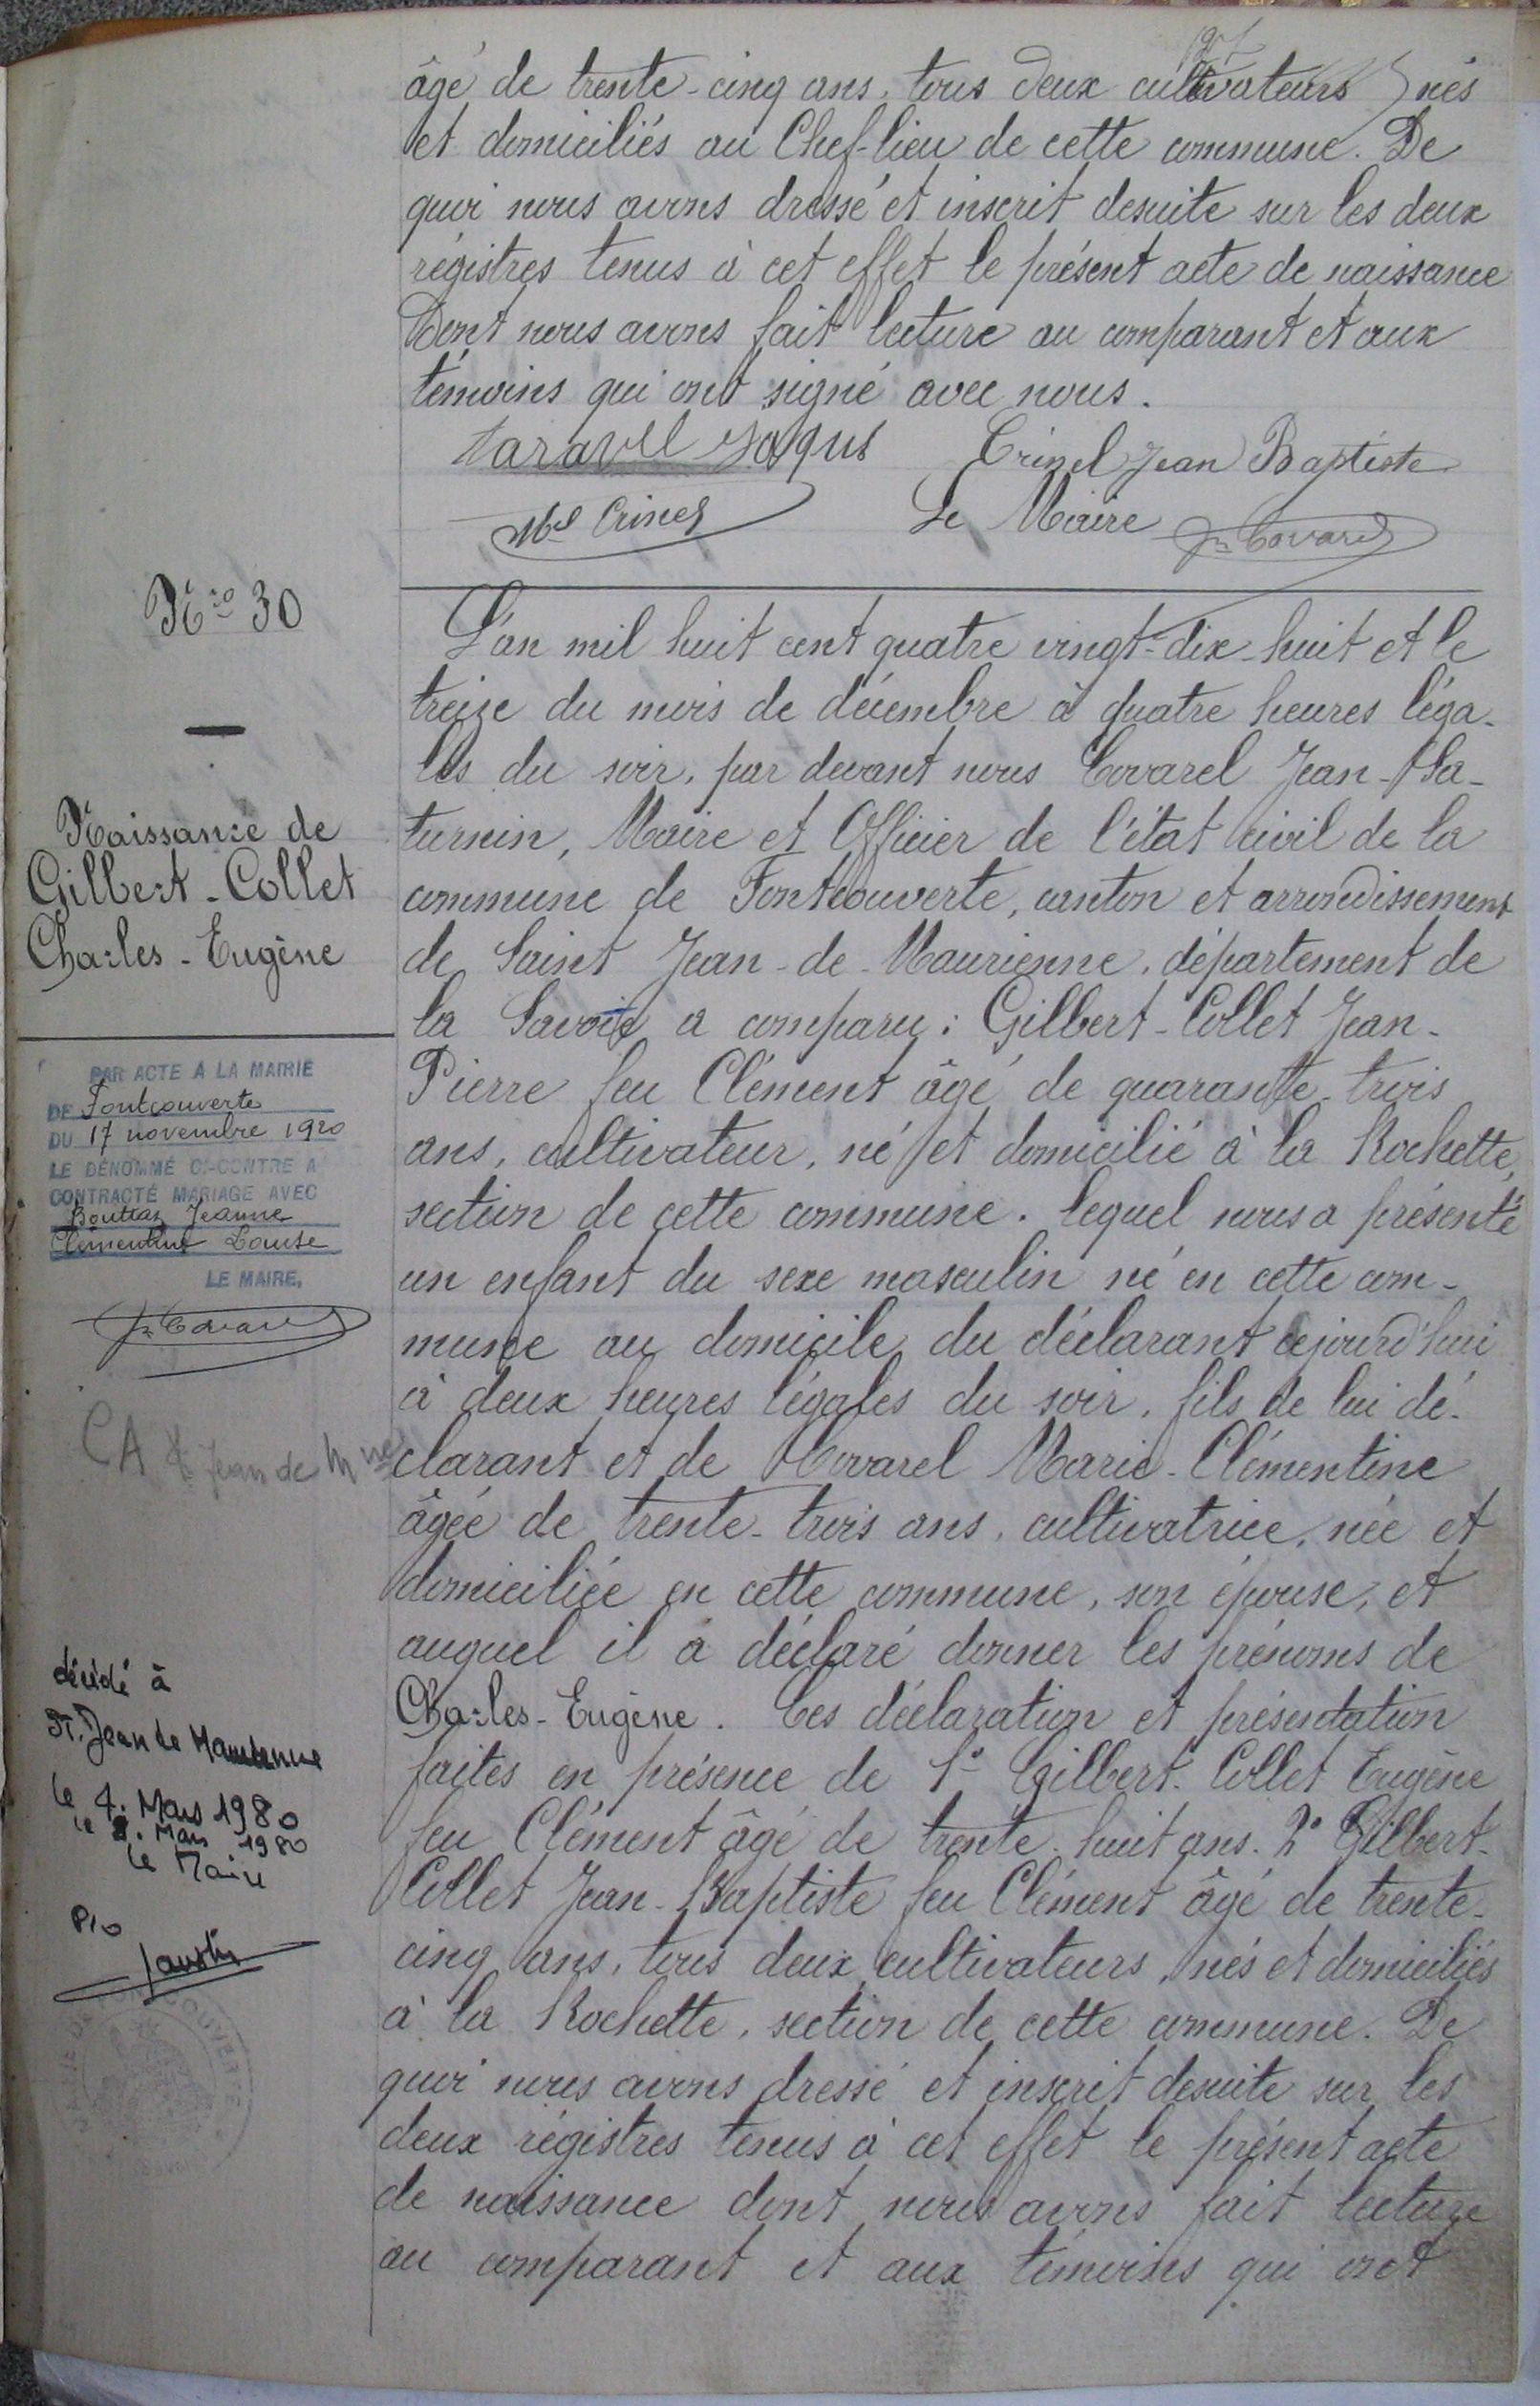 âgé de trente-cinq ans, tous deux cultivateurs, nés
et domiciliés au Chef-lieu de cette commune. De
quoi nous avons dressé et inscrit desuite sur les deux
régistres tenus à cet effet le présent acte de naissance
Dont nous avons fait lecture au comparant et aux
témoins qui ont signé avec nous.
Taravel Jean Baptiste
Le Maire
N:ro 30
Naissance de
Gilbert-Collet
Charles-Eugène
PAR ACTE A LA MAIRIE
DE Fontcouverte
DU 17 novembre 1920
LE DÉNOMMÉ CI-CONTRE A
CONTRACTÉ MARIAGE AVEC
Bouttaz Jeanne
Clémentine Louise
LE MAIRE,
Jn Covarel
CA St Jean de Mne
décédé à
St. Jean de Maurienne
le 4. Mars 1980
le 8. Mars 1980
le Maire
P/o
MAIRIE DE FONTCOUVERTE
L'an mil huit cent quatre vingt-dix-huit et le
treize du mois de décembre à quatre heures léga-
les du soir, par devant nous Covarel Jean-Sa-
turnin, Maire et Officier de l'état civil de la
commune de Fontcouverte, canton et arrondissement
de Saint Jean-de-Maurienne, département de
la Savoie a comparu: Gilbert-Collet Jean-
Pierre feu Clément âgé de quarante-trois
ans, cultivateur, né et domicilié à la Rochette,
section de cette commune. lequel nous a présenté
un enfant du sexe masculin né en cette com-
mune au domicile du déclarant cejourd'hui
à deux heures légales du soir, fils de lui dé-
clarant et de Covarel Marie-Clémentine
âgée de trente-trois ans, cultivatrice, née et
domiciliée en cette commune, son épouse, et
auquel il a déclaré donner les prénoms de
Charles-Eugène. Ces déclaration et présentation
faites en présence de 1° Gilbert-Collet Eugène
feu Clément âgé de trente-huit ans. 2° Gilbert-
Collet Jean-Baptiste feu Clément âgé de trente-
cinq ans, tous deux cultivateurs, nés et domiciliés
à la Rochette, section de cette commune. De
quoi nous avons dressé et inscrit desuite sur les
deux régistres tenus à cet effet le présent acte
de naissance dont nous avons fait lecture
au comparant et aux témoins qui ont